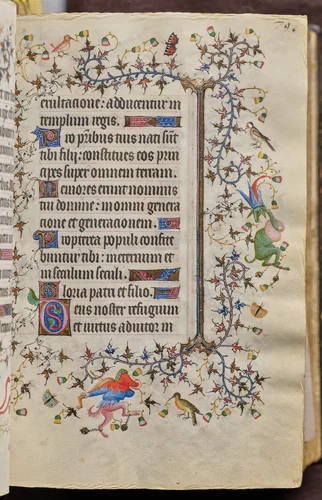 exultacione: adducentur in
templum regis.
Pro p̄ribus tuis nati sūt
tibi filij: constitues eos prin
cipes super omnem terram.
Memores erunt nominis
tui domine: in omni genera
cione et generacionem.
Propterea populi confite
buntur tibi: in eternum et
in seculum seculi.
Gloria patri et filio.
Deus noster refugium
et virtus adiutor in